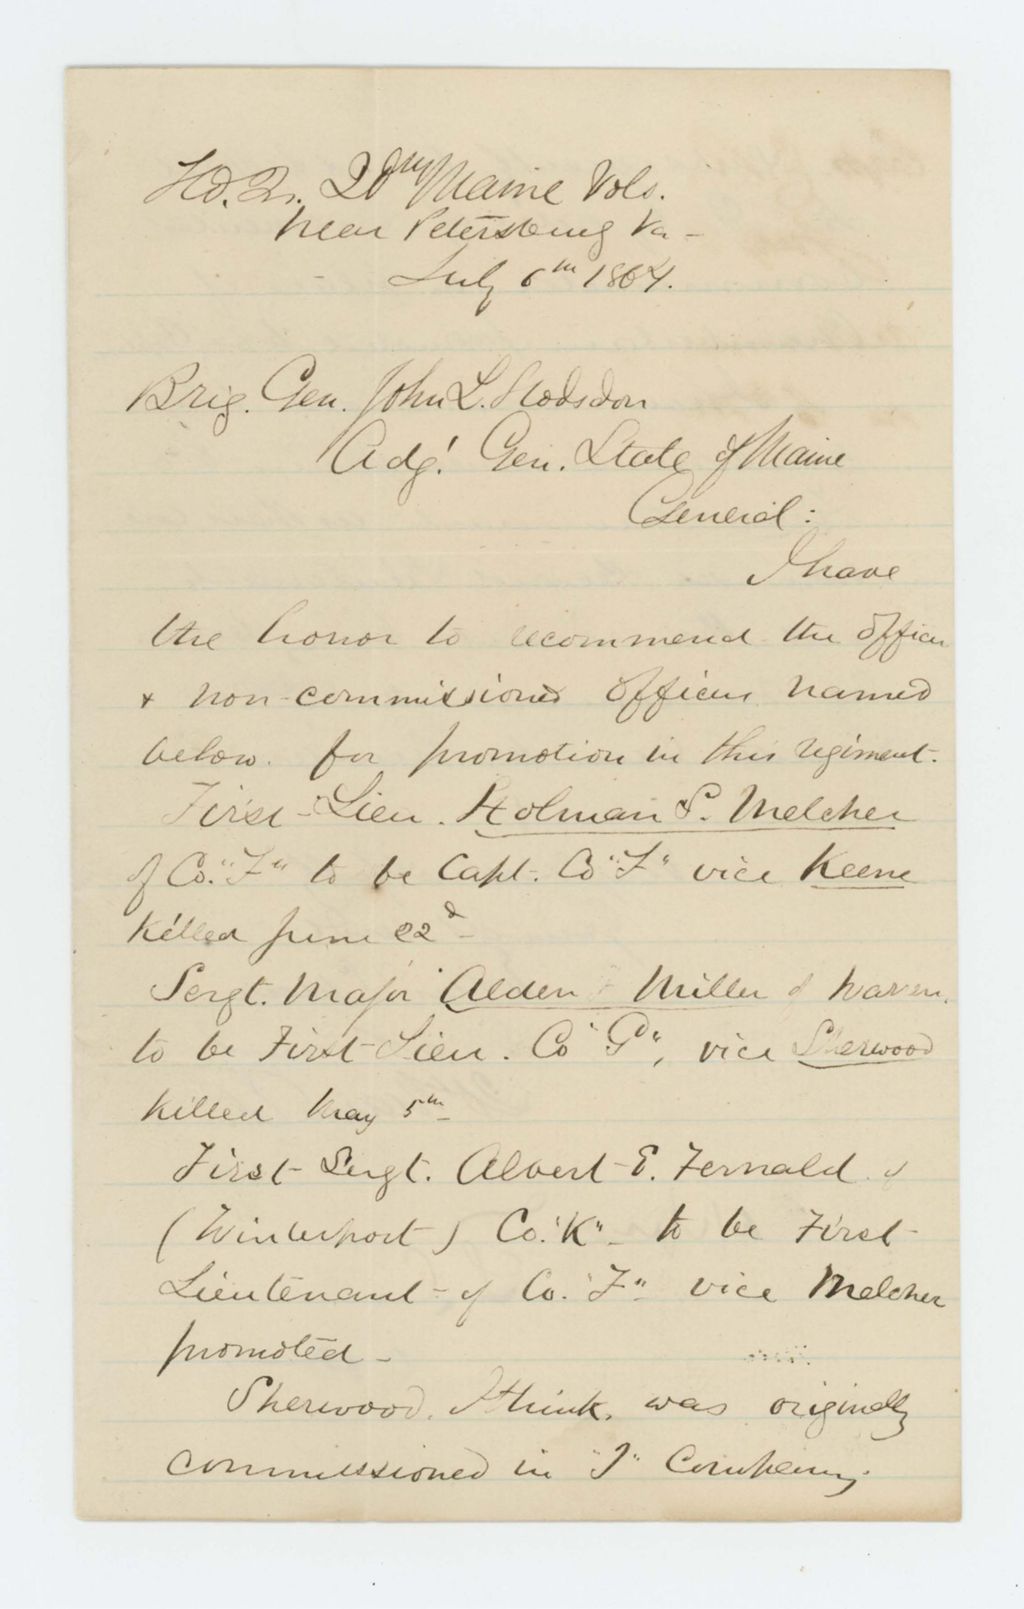 Hd. Qr. 20th Maine Vols.
Near Petersburg Va -
- July 6th 1864.
Brig. Gen. John L. Hodsdon
Adg! Gen. State of Maine
General:
I have
the honor to recommend the officer
& non-commissioned officers named
below. for promotion in this regiment.
First-Lieu. Holman S. Melcher
of Co. "F" to be Capt. Co "F" vice Keene
killed June 22d -
Sergt. Major Alden Miller of
to be First Lieu. Co "G", vice Sherwood
killed May 5th -
First-Sergt. Albert E. Fernald of
(Winterport) Co. "K" - to be First
Lieutenant - of Co. "F" vice Melcher
promoted -
Sherwood, I think, was originally
commissioned in "I" Company.